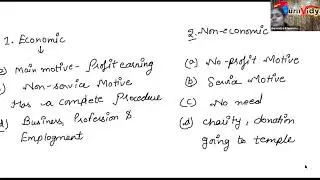 1. Economic
Main motive - Profit earning
Non-service Motive
Has a complete Procedure
Business, Profession &
Employment
2. Non-economic
(a) No-profit Motive
(b) Service Motive
(c) No need
(d) Charity, donation
going to temple